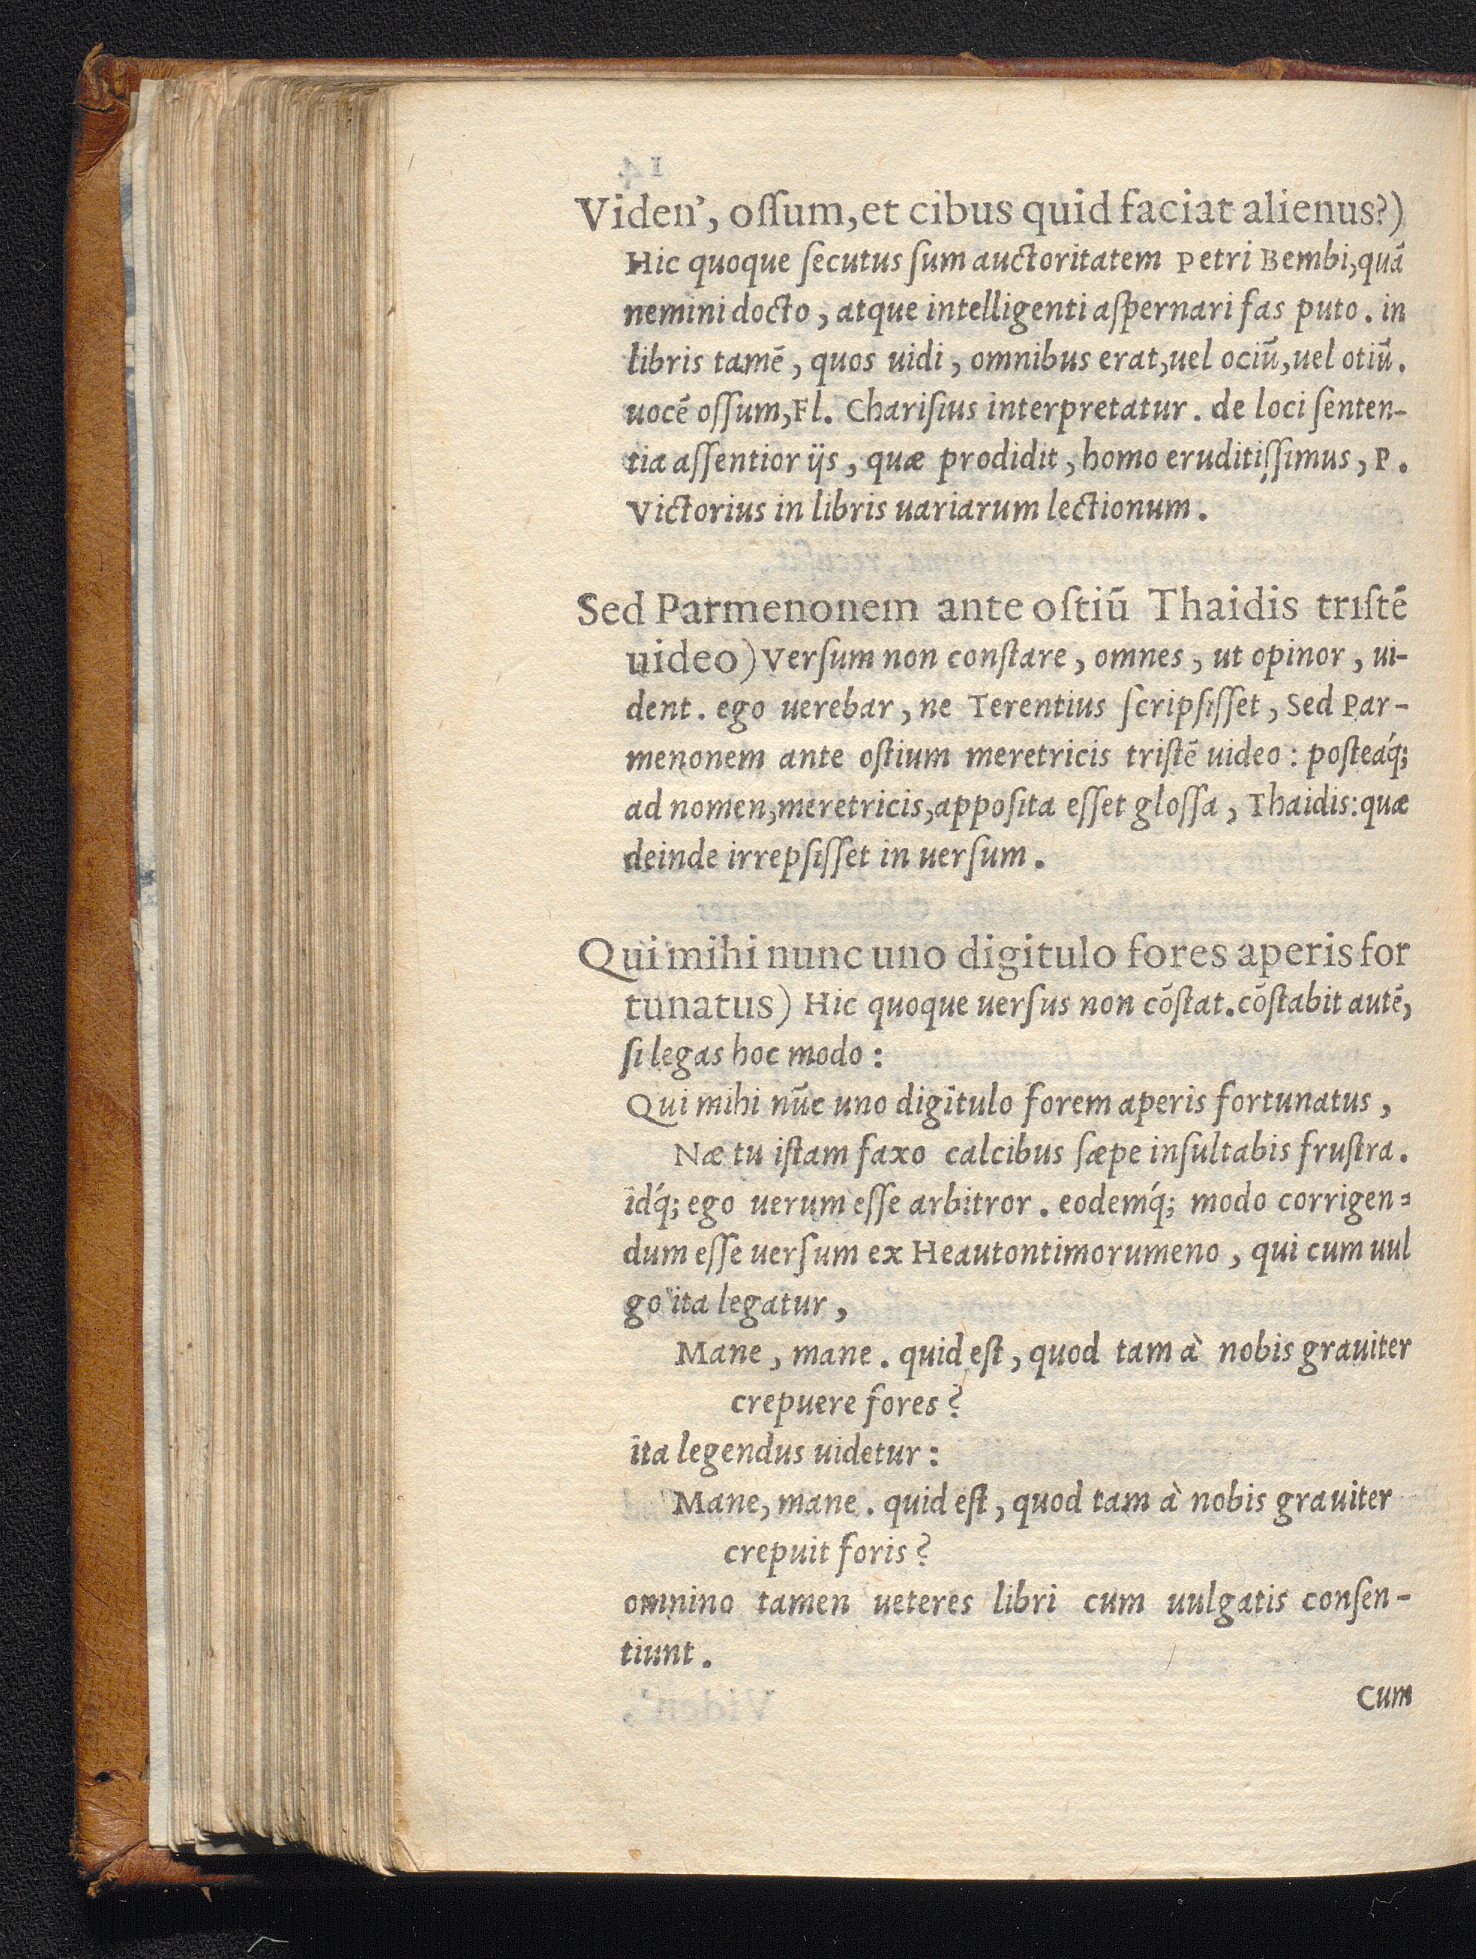 Viden’, oſſum, et cibus quid faciat alienus?)
Hic quoque ſecutus ſum auctoritatem Petri Bembi, quā
nemini docto, atque intelligenti aſpernari fas puto. in
libris tamē, quos uidi, omnibus erat, uel ociū, uel otiū.
uocē oſſum, Fl. Chariſius interpretatur. de loci ſenten-
tia aſſentior ijs, quæ prodidit, homo eruditiſſimus, P.
Victorius in libris uariarum lectionum.
Sed Parmenonem ante oſtiū Thaidis triſtē
uideo) Verſum non conſtare, omnes, ut opinor, ui-
dent. ego uerebar, ne Terentius ſcripſiſſet, Sed Par-
menonem ante oſtium meretricis triſtē uideo: poſteáq;
ad nomen, meretricis, appoſita eſſet gloſſa, Thaidis: quæ
deinde irrepſiſſet in uerſum.
Qui mihi nunc uno digitulo fores aperis for
tunatus) Hic quoque uerſus non cōſtat. cōſtabit autē,
ſi legas hoc modo:
Qui mihi nūc uno digitulo forem aperis fortunatus,
Næ tu iſtam faxo calcibus ſæpe inſultabis fruſtra.
idq́; ego uerum eſſe arbitror. eodemq́; modo corrigen-
dum eſſe uerſum ex Heautontimorumeno, qui cum uul
go ita legatur,
Mane, mane. quid eſt, quod tam à nobis grauiter
crepuere fores?
ita legendus uidetur:
Mane, mane. quid eſt, quod tam à nobis grauiter
crepuit foris?
omnino tamen ueteres libri cum uulgatis conſen-
tiunt.
Cum